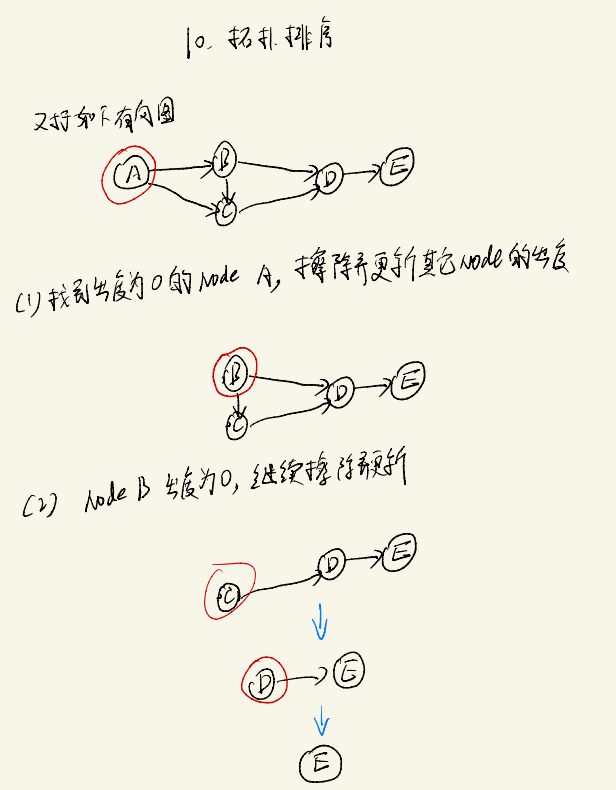 10. 拓扑排序
对于如下有向图
A B D E
C
(1) 找到出度为0的Node A, 擦除并更新其它Node的出度
B D E
C
(2) Node B 出度为0, 继续擦除并更新
D E
C
D E
E